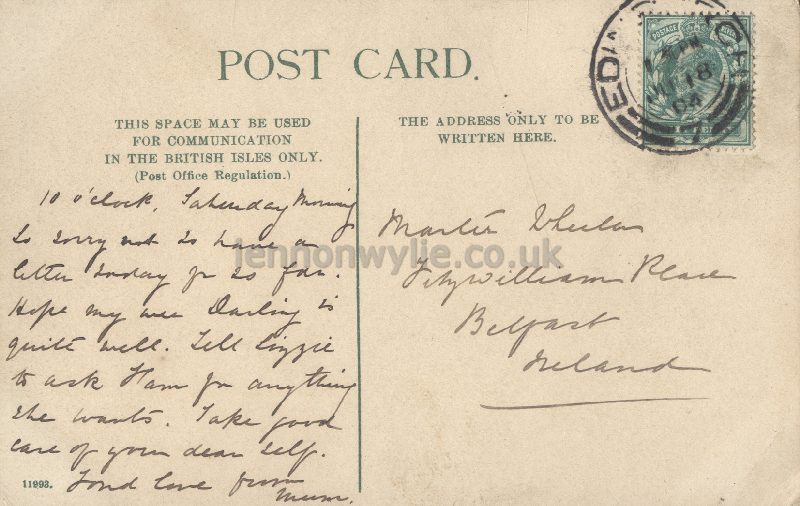 POST CARD.
THIS SPACE MAY BE USED
FOR COMMUNICATION
IN THE BRITISH ISLES ONLY.
(Post Office Regulation.)
THE ADDRESS ONLY TO BE
WRITTEN HERE.
POSTAGE
18
04
10 o'clock, Saturday Morning
So sorry not to have a
letter today so far.
Hope my wee Darling is
quite well. Tell Lizzie
to ask for anything
she wants. Take good
care of your dear self.
Fond love from
Mum.
11993.
Master Wheelan
Fitzwilliam Place
Belfast
Ireland
lennonwylie.co.uk